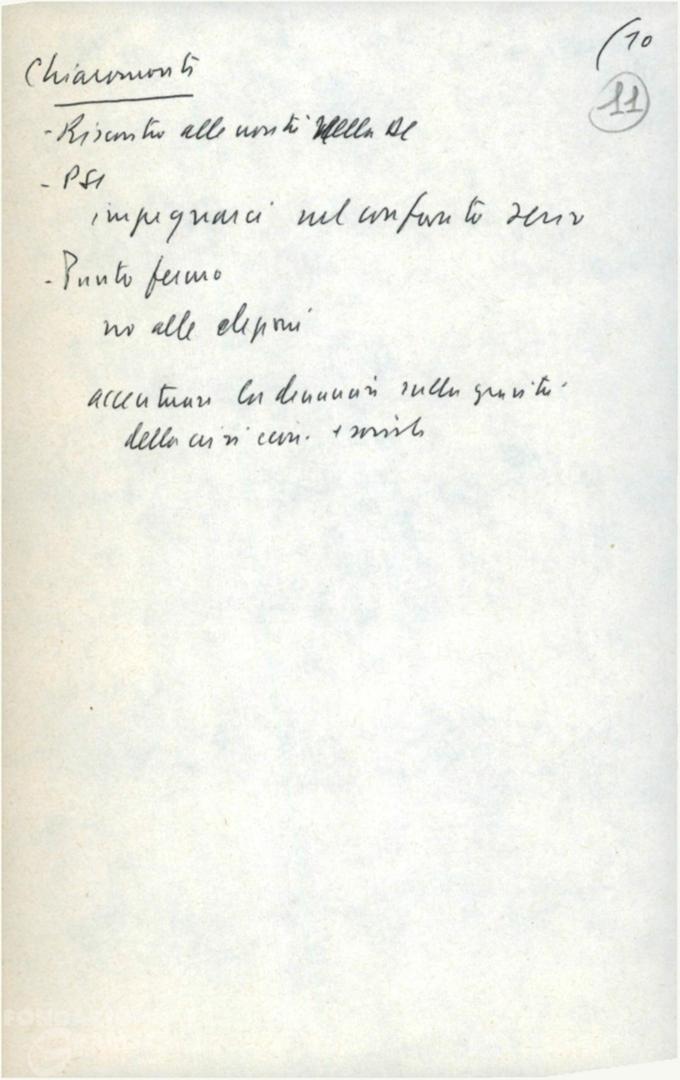 (10
11
Chiaromonte
- Riscontro alle novità della DC
- PSI
impegnarci nel confronto serio
- Punto fermo
no alle elezioni
accentuare la denuncia sulla gravità
della crisi econ. e sociale